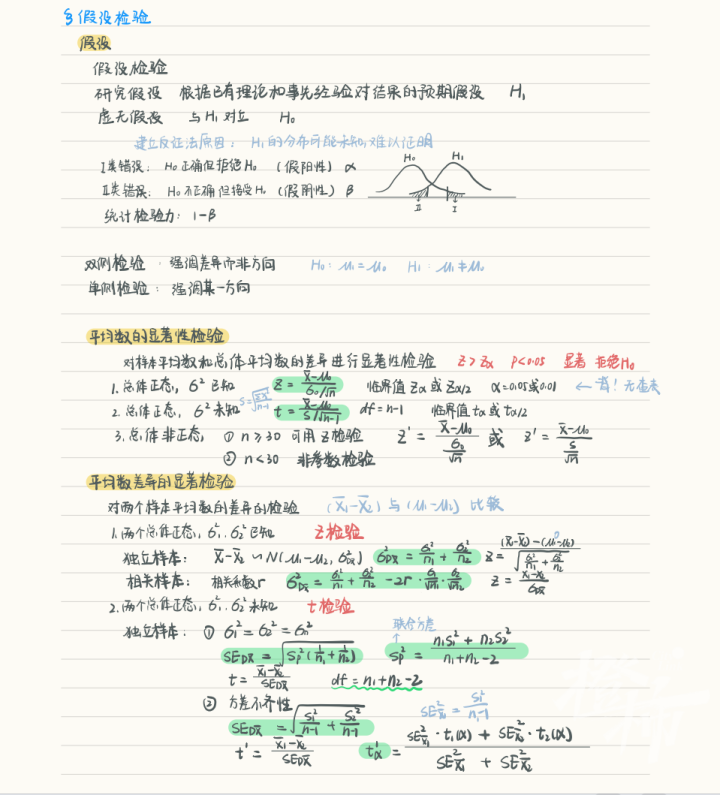 § 假设检验
假设
假设检验
研究假设 根据已有理论和事先经验对结果的预期假设 H₁
虚无假设 与H₁对立 H₀
建立反证法原因: H₁的分布可能未知,难以证明
I类错误: H₀正确但拒绝H₀ (假阳性) α
II类错误: H₀不正确但接受H₀ (假阴性) β
H₀ H₁
II I
统计检验力: 1-β
双侧检验: 强调差异而非方向 H₀: μ₁=μ₀ H₁: μ₁≠μ₀
单侧检验: 强调某一方向
平均数的显著性检验
对样本平均数和总体平均数的差异进行显著性检验 Z>Zα P<0.05 显著 拒绝H₀
1.总体正态, σ² 已知 Z = (X̄-μ₀)/(σ₀/√n) 临界值 Zα 或 Zα/2 α=0.05或0.01 ← 背!无表查
2.总体正态, σ²未知 t = (X̄-μ₀)/(S/√n-1) df=n-1 临界值 tα 或 tα/2
3.总体非正态, ① n≥30 可用Z检验 Z' = (X̄-μ₀)/(σ₀/√n) 或 Z' = (X̄-μ₀)/(S/√n)
② n<30 非参数检验
平均数差异的显著检验
对两个样本平均数的差异的检验 (X̄₁-X̄₂) 与 (μ₁-μ₂) 比较
1.两个总体正态, σ₁², σ₂²已知 Z检验
独立样本: X̄₁-X̄₂ ~ N(μ₁-μ₂, σ²DX̄) σ²DX̄ = σ₁²/n₁ + σ₂²/n₂ Z = ((X̄₁-X̄₂)-(μ₁-μ₂))/√(σ₁²/n₁ + σ₂²/n₂)
相关样本: 相关系数r σ²DX̄ = σ₁²/n₁ + σ₂²/n₂ - 2r·σ₁/√n₁·σ₂/√n₂ Z = (X̄₁-X̄₂)/σDX̄
2.两个总体正态, σ₁², σ₂²未知 t检验
联合方差
独立样本: ① σ₁²=σ₂²=σ₀²
SEDX̄ = √(Sp²(1/n₁+1/n₂)) Sp² = (n₁S₁² + n₂S₂²)/(n₁+n₂-2)
t = (X̄₁-X̄₂)/SEDX̄ df = n₁+n₂-2
② 方差不齐性 SE²X̄₁ = S₁²/(n₁-1)
SEDX̄ = √(S₁²/(n₁-1) + S₂²/(n₂-1))
t' = (X̄₁-X̄₂)/SEDX̄ t'α = (SE²X̄₁·t₁(α) + SE²X̄₂·t₂(α))/(SE²X̄₁ + SE²X̄₂)